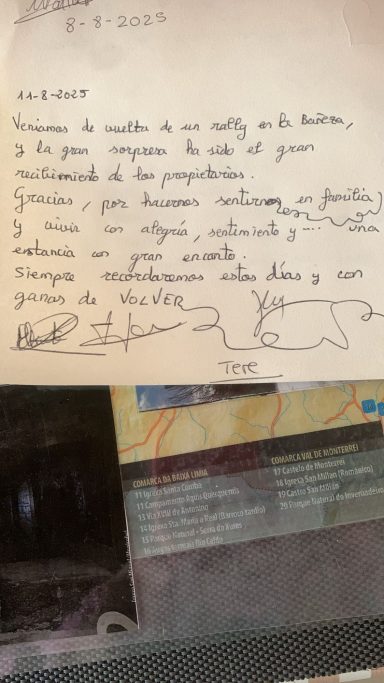 8-8-2025
11-8-2025
Veniamos de vuelta de un rally en la Bañeza,
y la gran sorpresa ha sido el gran
recibimiento de los propietarios.
Gracias, por hacernos sentirnos en familia
y vivir con alegría, sentimiento y .... una
estancia con gran encanto.
Siempre recordaremos estos días y con
ganas de VOLVER
TERE
COMARCA DA BAIXA LIMIA
11 Igrexa Santa Comba
12 Campamento Aquis Querquennis
13 Vía XVIII de Antonino
14 Igrexa Sta. María a Real (Barroco tardío)
15 Parque Natural - Serra do Xurés
16 Augas termais Río Caldo
COMARCA VAL DE MONTERREI
17 Castelo de Monterrei
18 Igrexa San Millao (Románico)
19 Castro San Millán
20 Parque Natural do Invernadeiro